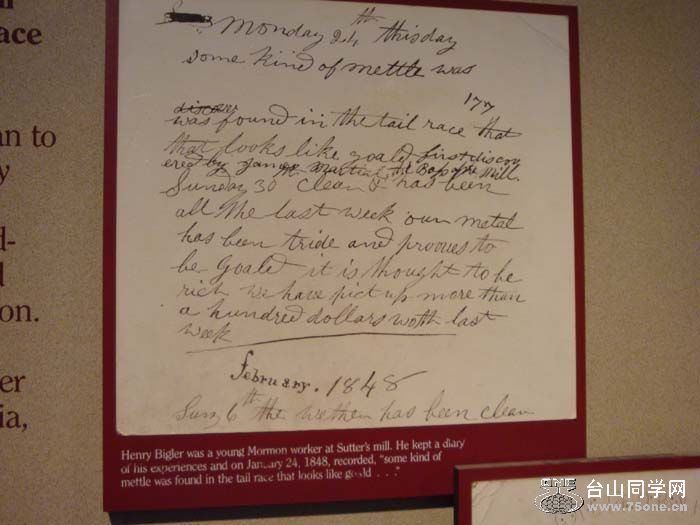 ace
an to
y
d-
d
on.
er
ia,
Monday 24th this day
some kind of mettle was
177
discover
was found in the tail race that
that looks like goald first discov
ered by James Martial, the Boss of the Mill.
Sunday 30 clear & has been
all the last week our metal
has been tride and prooves to
be goald it is thought to be
rich we have pict up more than
a hundred dollars woth last
week
february. 1848
Sun, 6th the wether has been clear
Henry Bigler was a young Mormon worker at Sutter's mill. He kept a diary
of his experiences and on January 24, 1848, recorded, "some kind of
mettle was found in the tail race that looks like goald . . ."
台山同学网
www.75one.cn